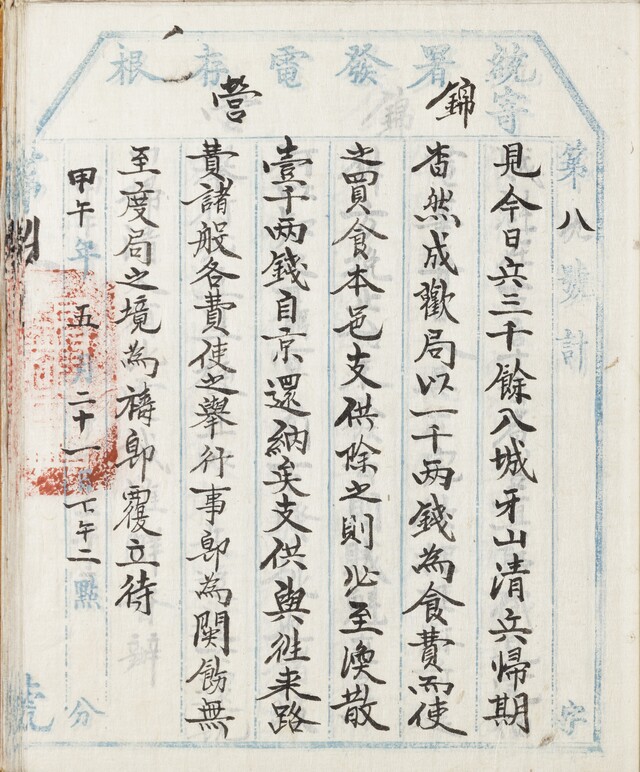 統寄署發電存根
錦營
第八號計 字
見今日兵三千餘入城牙山清兵帰期
杳然成歡局以一千兩錢為食費而使
之買食本邑支供除之則必至渙散
壹千兩錢自京還納矣支供與往来路
費諸般各費使之舉行事卽為関飭無
至度局之境為禱卽覆立待
甲午年五月二十一日下午二點 分
號